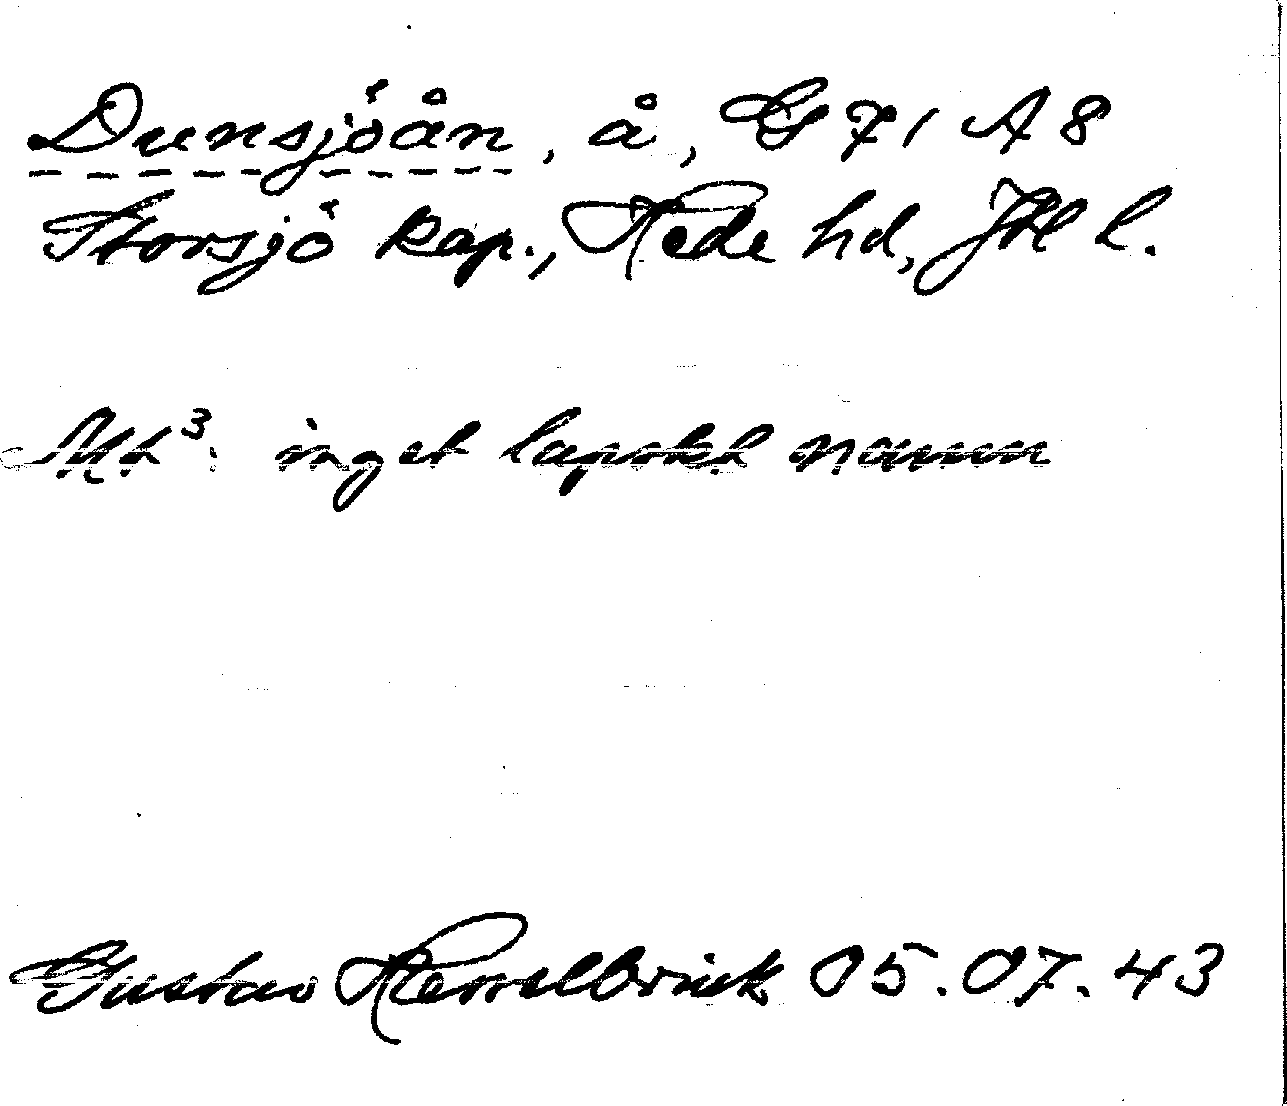 Dunsjöån, å, G 71 A 8
Storsjö kap., Hede hd, Jtl l.
Mt³: inget lapskt namn
Gustav Hasselbrink 05.07.43